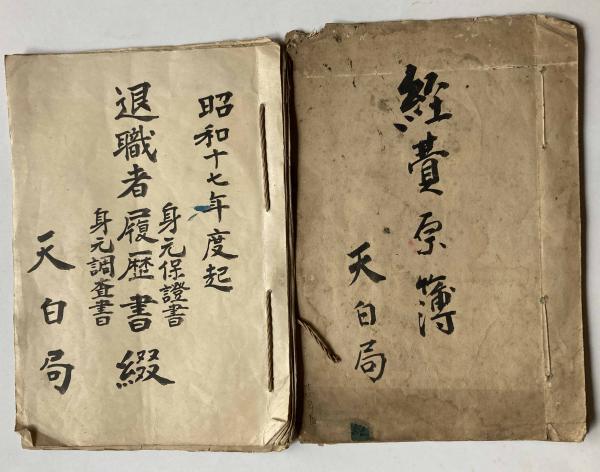 昭和十七年度起
身元保證書
退職者履歴書綴
身元調査書
天白局
経費原簿
天白局